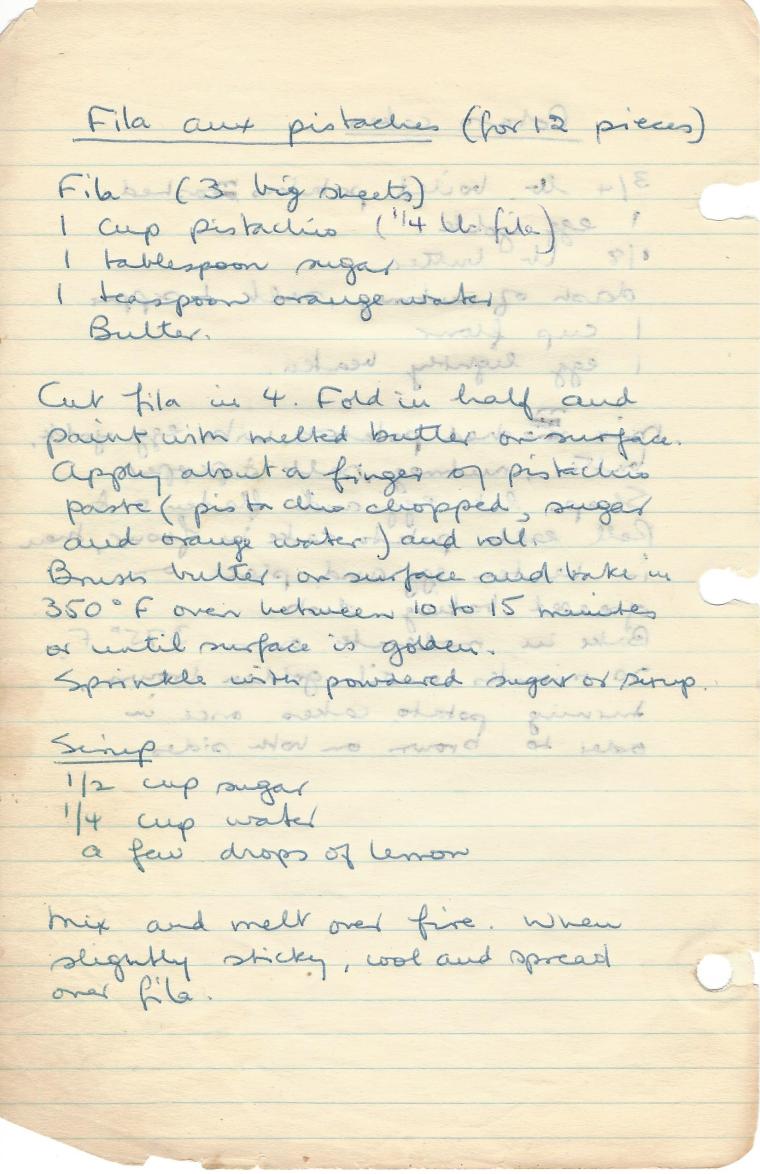 Fila aux pistaches (for 12 pieces)
Fila (3 big sheets)
1 cup pistachio (1/4 lb fila)
1 tablespoon sugar
1 teaspoon orange water
Butter.
Cut fila in 4. Fold in half and
paint with melted butter on surface.
Apply about a finger of pistachio
paste (pistachio chopped, sugar
and orange water) and roll.
Brush butter on surface and bake in
350° F oven between 10 to 15 minutes
or until surface is golden.
Sprinkle with powdered sugar or sirup.
Sirup
1/2 cup sugar
1/4 cup water
a few drops of lemon
Mix and melt over fire. When
slightly sticky, cool and spread
over fila.